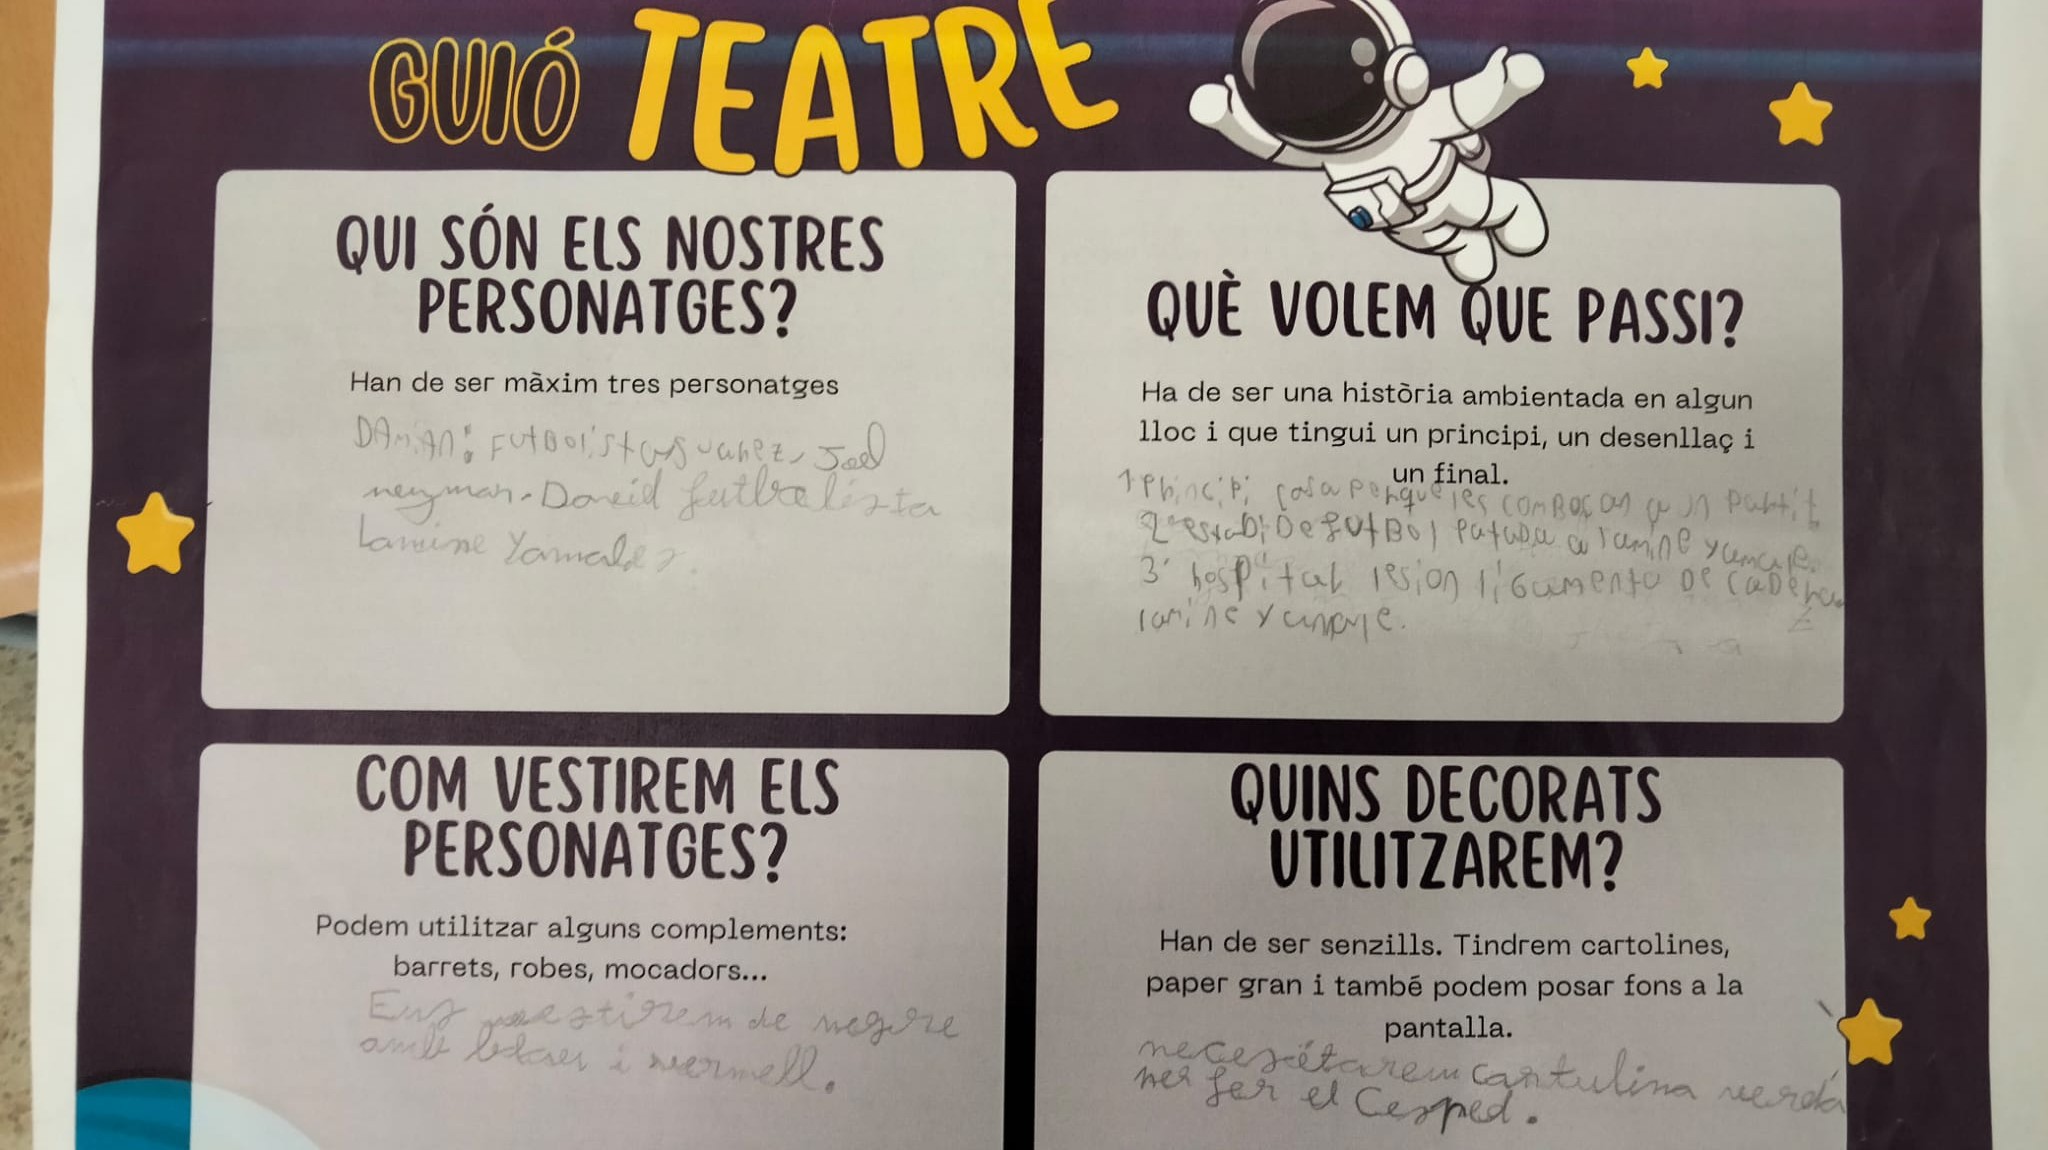 GUIÓ TEATRE
QUI SÓN ELS NOSTRES
PERSONATGES?
Han de ser màxim tres personatges
DAMIAN: FUTBOLISTA SUAREZ, Joel
neymar. David futbolista
Lamine Yamal
QUÈ VOLEM QUE PASSI?
Ha de ser una història ambientada en algun
lloc i que tingui un principi, un desenllaç i
un final.
1 Principi casa perque les comBocan a un partit
2 estadi De FUTBOl patada a lamine
3 hospital lesion ligamento De caDera
lamine
COM VESTIREM ELS
PERSONATGES?
Podem utilitzar alguns complements:
barrets, robes, mocadors...
Ens vestirem de negre
amb blau i vermell.
QUINS DECORATS
UTILITZAREM?
Han de ser senzills. Tindrem cartolines,
paper gran i també podem posar fons a la
pantalla.
necesitarem cartulina verda
per fer el Cesped.